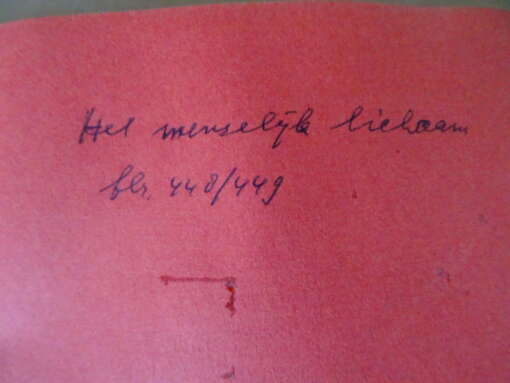 Het menselijk lichaam
blz. 448/449